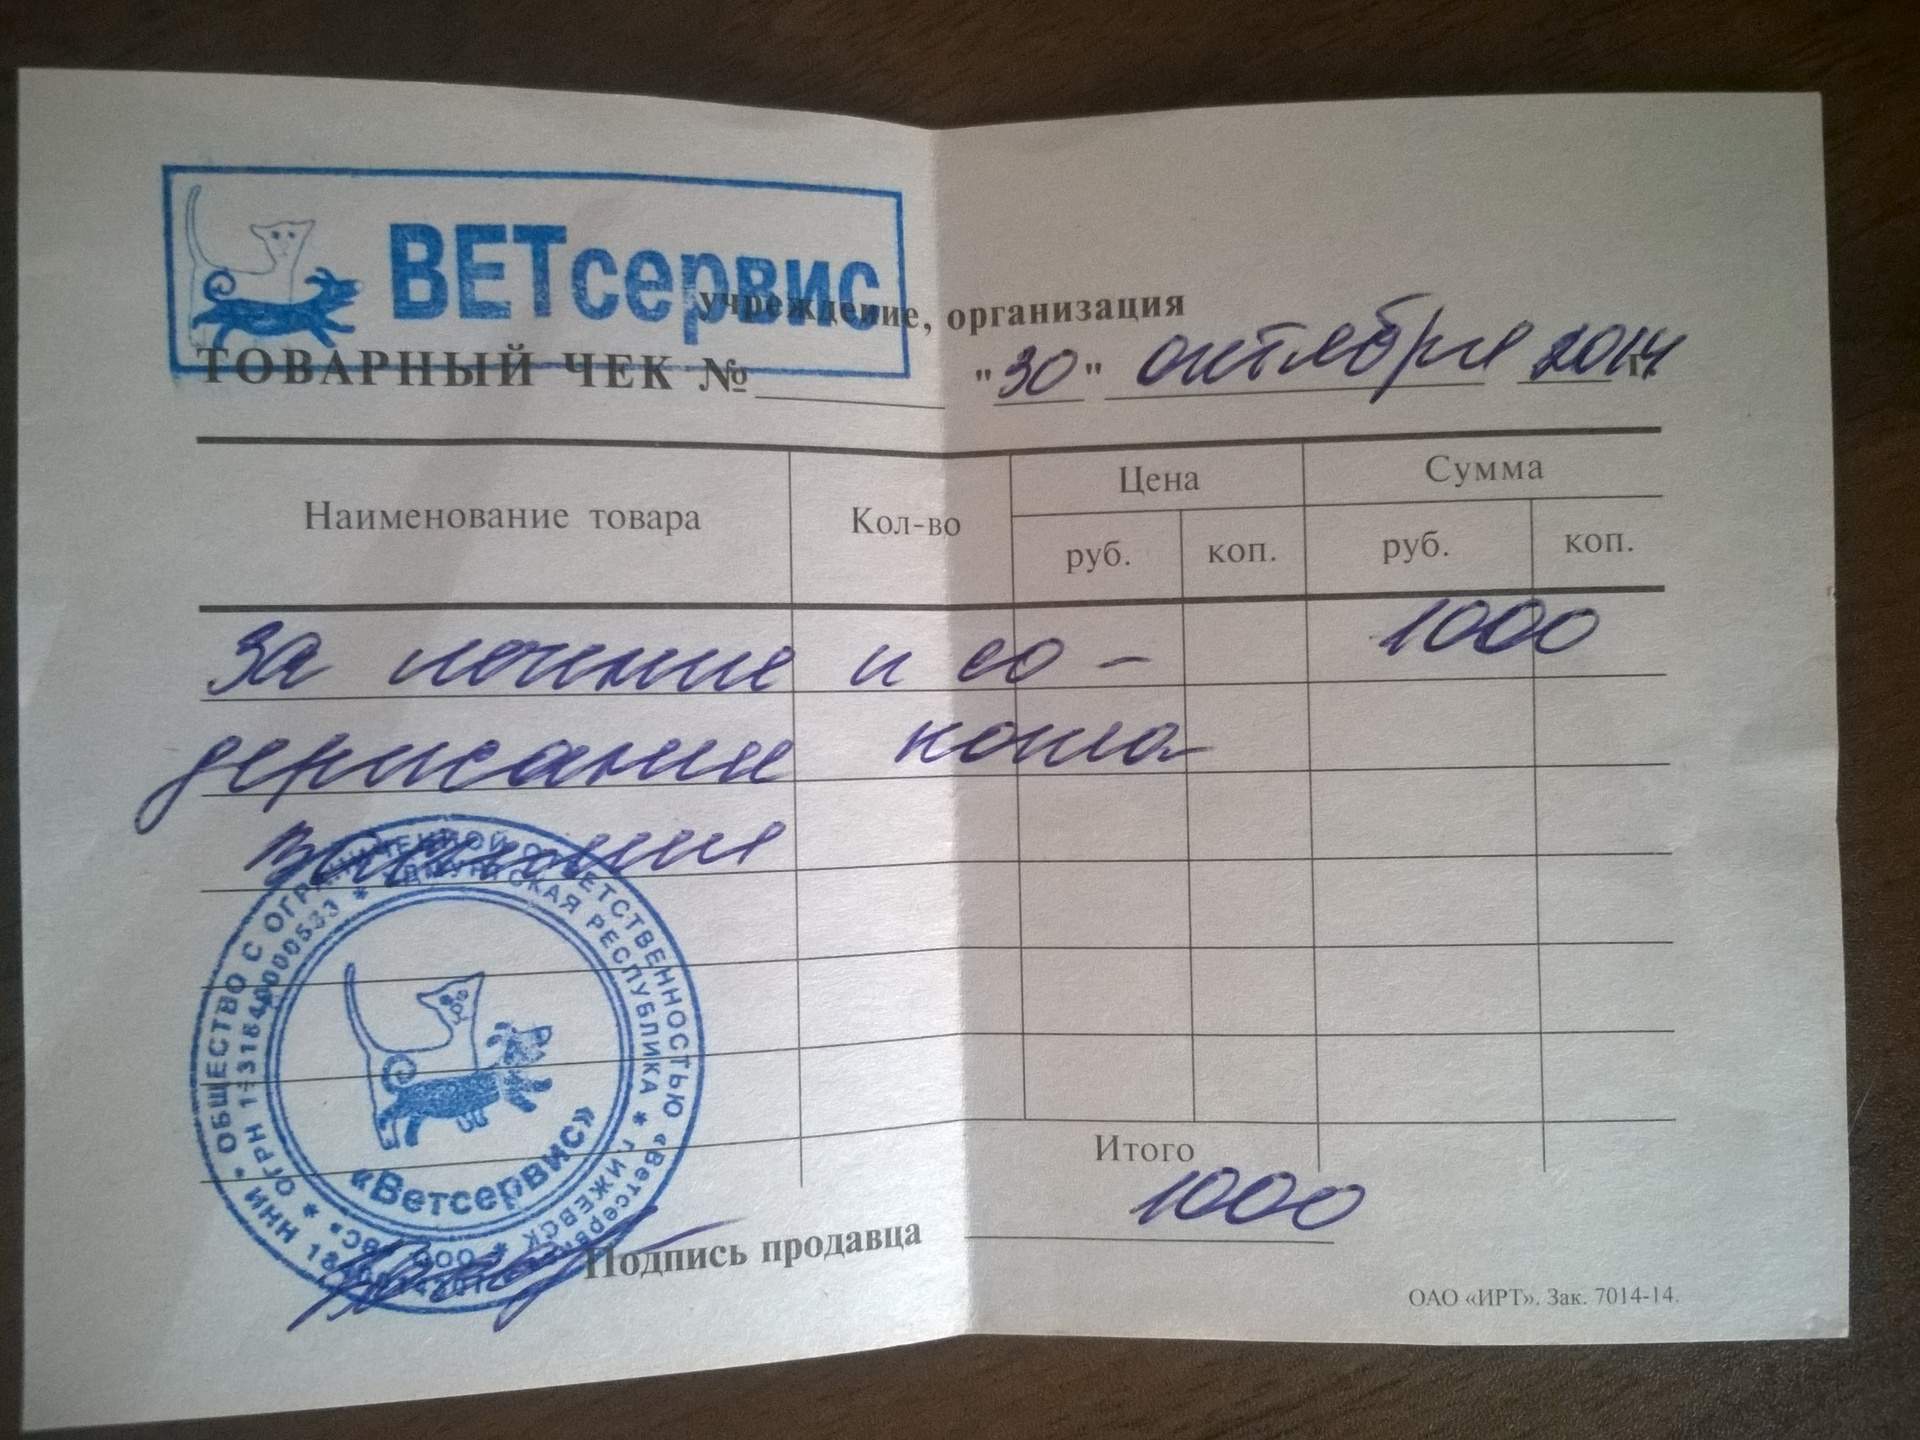 ВЕТсервис
учреждение, организация
ТОВАРНЫЙ ЧЕК № "30" октября 2014 г.
Наименование товара Кол-во Цена Сумма
руб. коп. руб. коп.
За лечение и со- 1000
держание кота
Итого
1000
Подпись продавца
ОАО «ИРТ». Зак. 7014-14.
* ОБЩЕСТВО С ОГРАНИЧЕННОЙ ОТВЕТСТВЕННОСТЬЮ «Ветсервис»
* УДМУРТСКАЯ РЕСПУБЛИКА * г.ИЖЕВСК * ООО
ИНН
ОГРН
«Ветсервис»